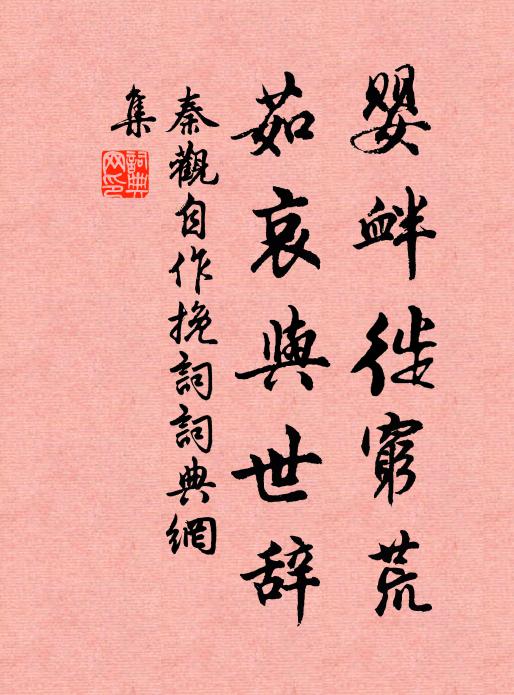 嬰衅徙窮荒
茹哀與世辞
秦觀自作挽詞詞典網
集
詞典
网印